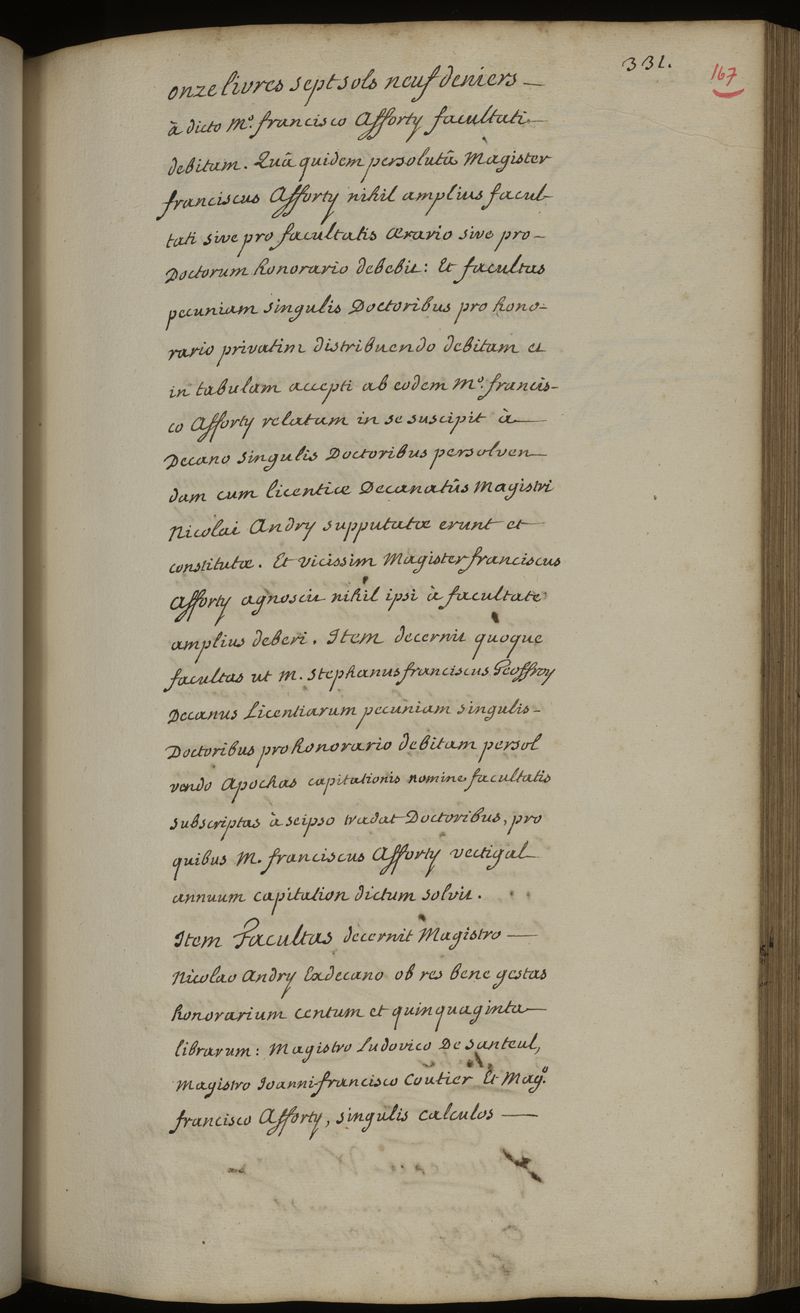 331.
167
onze livres sept sols neuf deniers —
à dicto M.º francisco Afforty facultati—
debitam. Quâ quidem persolutâ Magister
franciscus Afforty nihil amplius facul-
tati sive pro facultatis Ærario sive pro—
Doctorum honorario debebit: Et facultas
pecuniam singulis Doctoribus pro hono-
rario privatim distribuendo debitam et
in tabulam accepti ab eodem M.º francis-
co Afforty relatam in se suscipit à—
Decano singulis Doctoribus persolven—
dam cum licentiæ Decanatûs Magistri
Nicolai Andry supputatæ erunt et—
constitutæ. Et vicissim Magister franciscus
Afforty agnoscit nihil ipsi à facultate
amplius deberi. Item decernit quoque
facultas ut M. Stephanus franciscus Geoffroy
Decanus Licentiarum pecuniam singulis—
Doctoribus pro honorario debitam persol
vendo Apochas capitationis nomine facultatis
subscriptas à seipso tradat Doctoribus, pro
quibus M. franciscus Afforty vectigal—
annuum capitation dictum solvit.
Item Facultas decernit Magistro —
Nicolao Andry Exdecano ob res bene gestas
honorarium centum et quinquaginta—
librarum: Magistro Ludovico De Santeul,
Magistro Joanni-francisco Coutier Et Mag.º
francisco Afforty, singulis calculos —